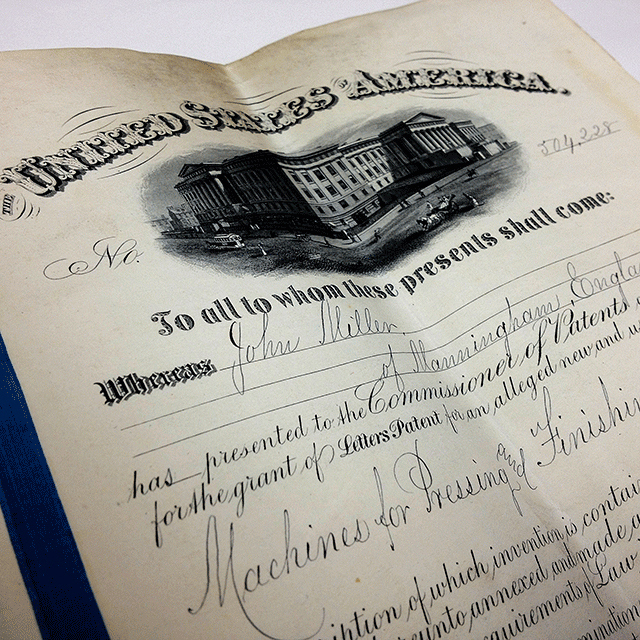 THE UNITED STATES OF AMERICA.
504,228
No.
To all to whom these presents shall come:
Whereas John Miller
of Manningham,
has presented to the Commissioner of Patents
for the grant of Letters Patent for an alleged new and
Machines for Pressing and
of which invention is
annexed and made
of Law